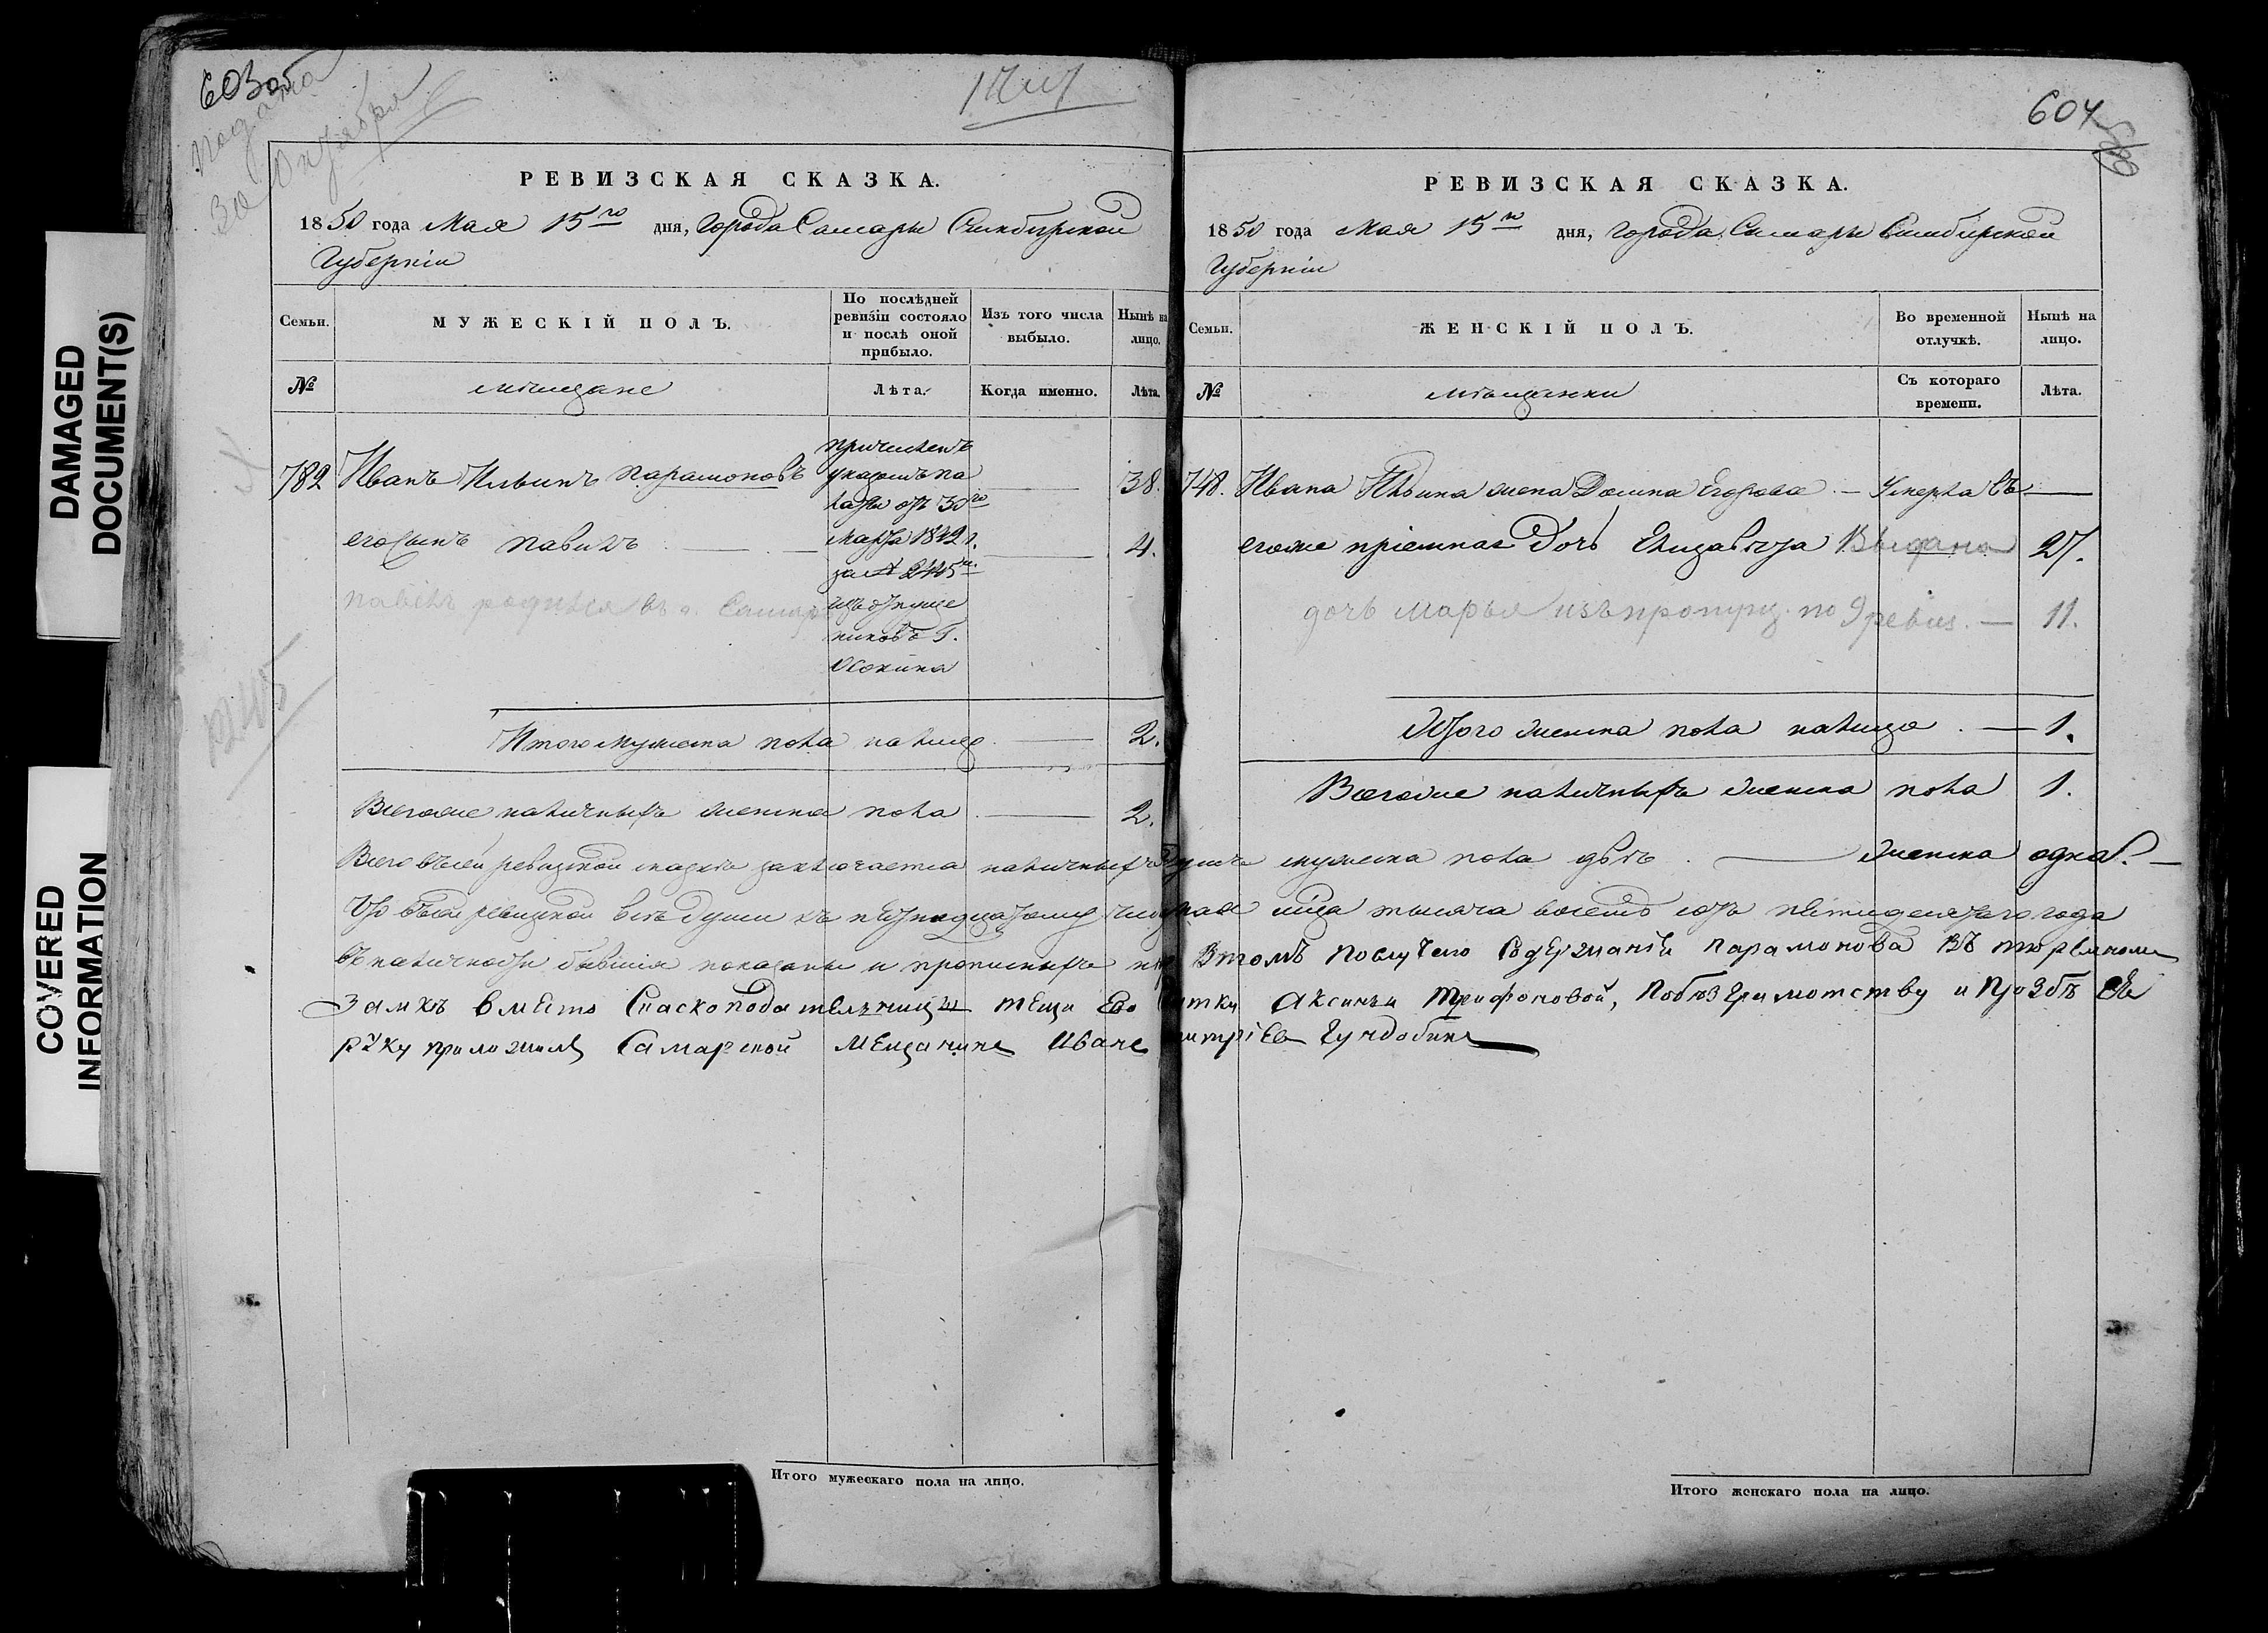 DAMAGED
DOCUMENT(S)
COVERED
INFORMATION
603об
подана
30 Октября
РЕВИЗСКАЯ СКАЗКА.
1850 года Мая 15го дня, Города Самары Симбирской
Губернiи
Семьи.
МУЖЕСКIЙ ПОЛЪ.
По послѣдней
ревизiи состояло
и послѣ оной
прибыло.
Изъ того числа
выбыло.
Нынѣ на
лицо.
№
мѣщане
Лѣта.
Когда именно.
Лѣта.
782 Иванъ Ильинъ Парамоновъ 38.
причисленъ
указомъ па
латы отъ 30го
марта 1842 г.
за № 2445м.
изъ отпуще
никовъ Г.
Осокина
его сынъ Павилъ 4.
Павелъ родился въ г. Самарѣ
2445
Итого мужеска пола на лицо 2.
Всегоже наличныхъ женска пола 2.
604
РЕВИЗСКАЯ СКАЗКА.
1850 года Мая 15го дня, Города Самары Симбирской
Губернiи
Семьи.
ЖЕНСКIЙ ПОЛЪ.
Во временной
отлучкѣ.
Нынѣ на
лицо.
№
мѣщанки
Съ котораго
времени.
Лѣта.
748. Ивана Ильина жена Домна Егорова — Умерла въ —
егоже прiемная дочь Елизавѣта Выдана 27.
дочь Марья изъ пропущ. по 9 ревиз. — 11.
Итого женска пола налицо — 1.
Всегоже наличныхъ женска пола 1.
Всего въ сей ревизской сказкѣ заключается наличныхъ душъ мужеска пола двѣ. — женска одна. —
Что въ сей ревизской всѣ души къ пятнадцатому числу мая мѣсяца тысяча восемь сотъ пятидесятого года
въ наличности бывшiя показаны и прописныхъ Втомъ послучаю Содержанiя Парамонова въ тюремном
Замкѣ вместо Скаскоподательницы теща Его Аксиньи Трифоновой, Побезграмотству и Прозбѣ Ея
руку приложилъ Самарской Мещанинъ Иванъ Дмитрiевъ Гундобинъ
Итого мужескаго пола на лицо.
Итого женскаго пола на лицо.